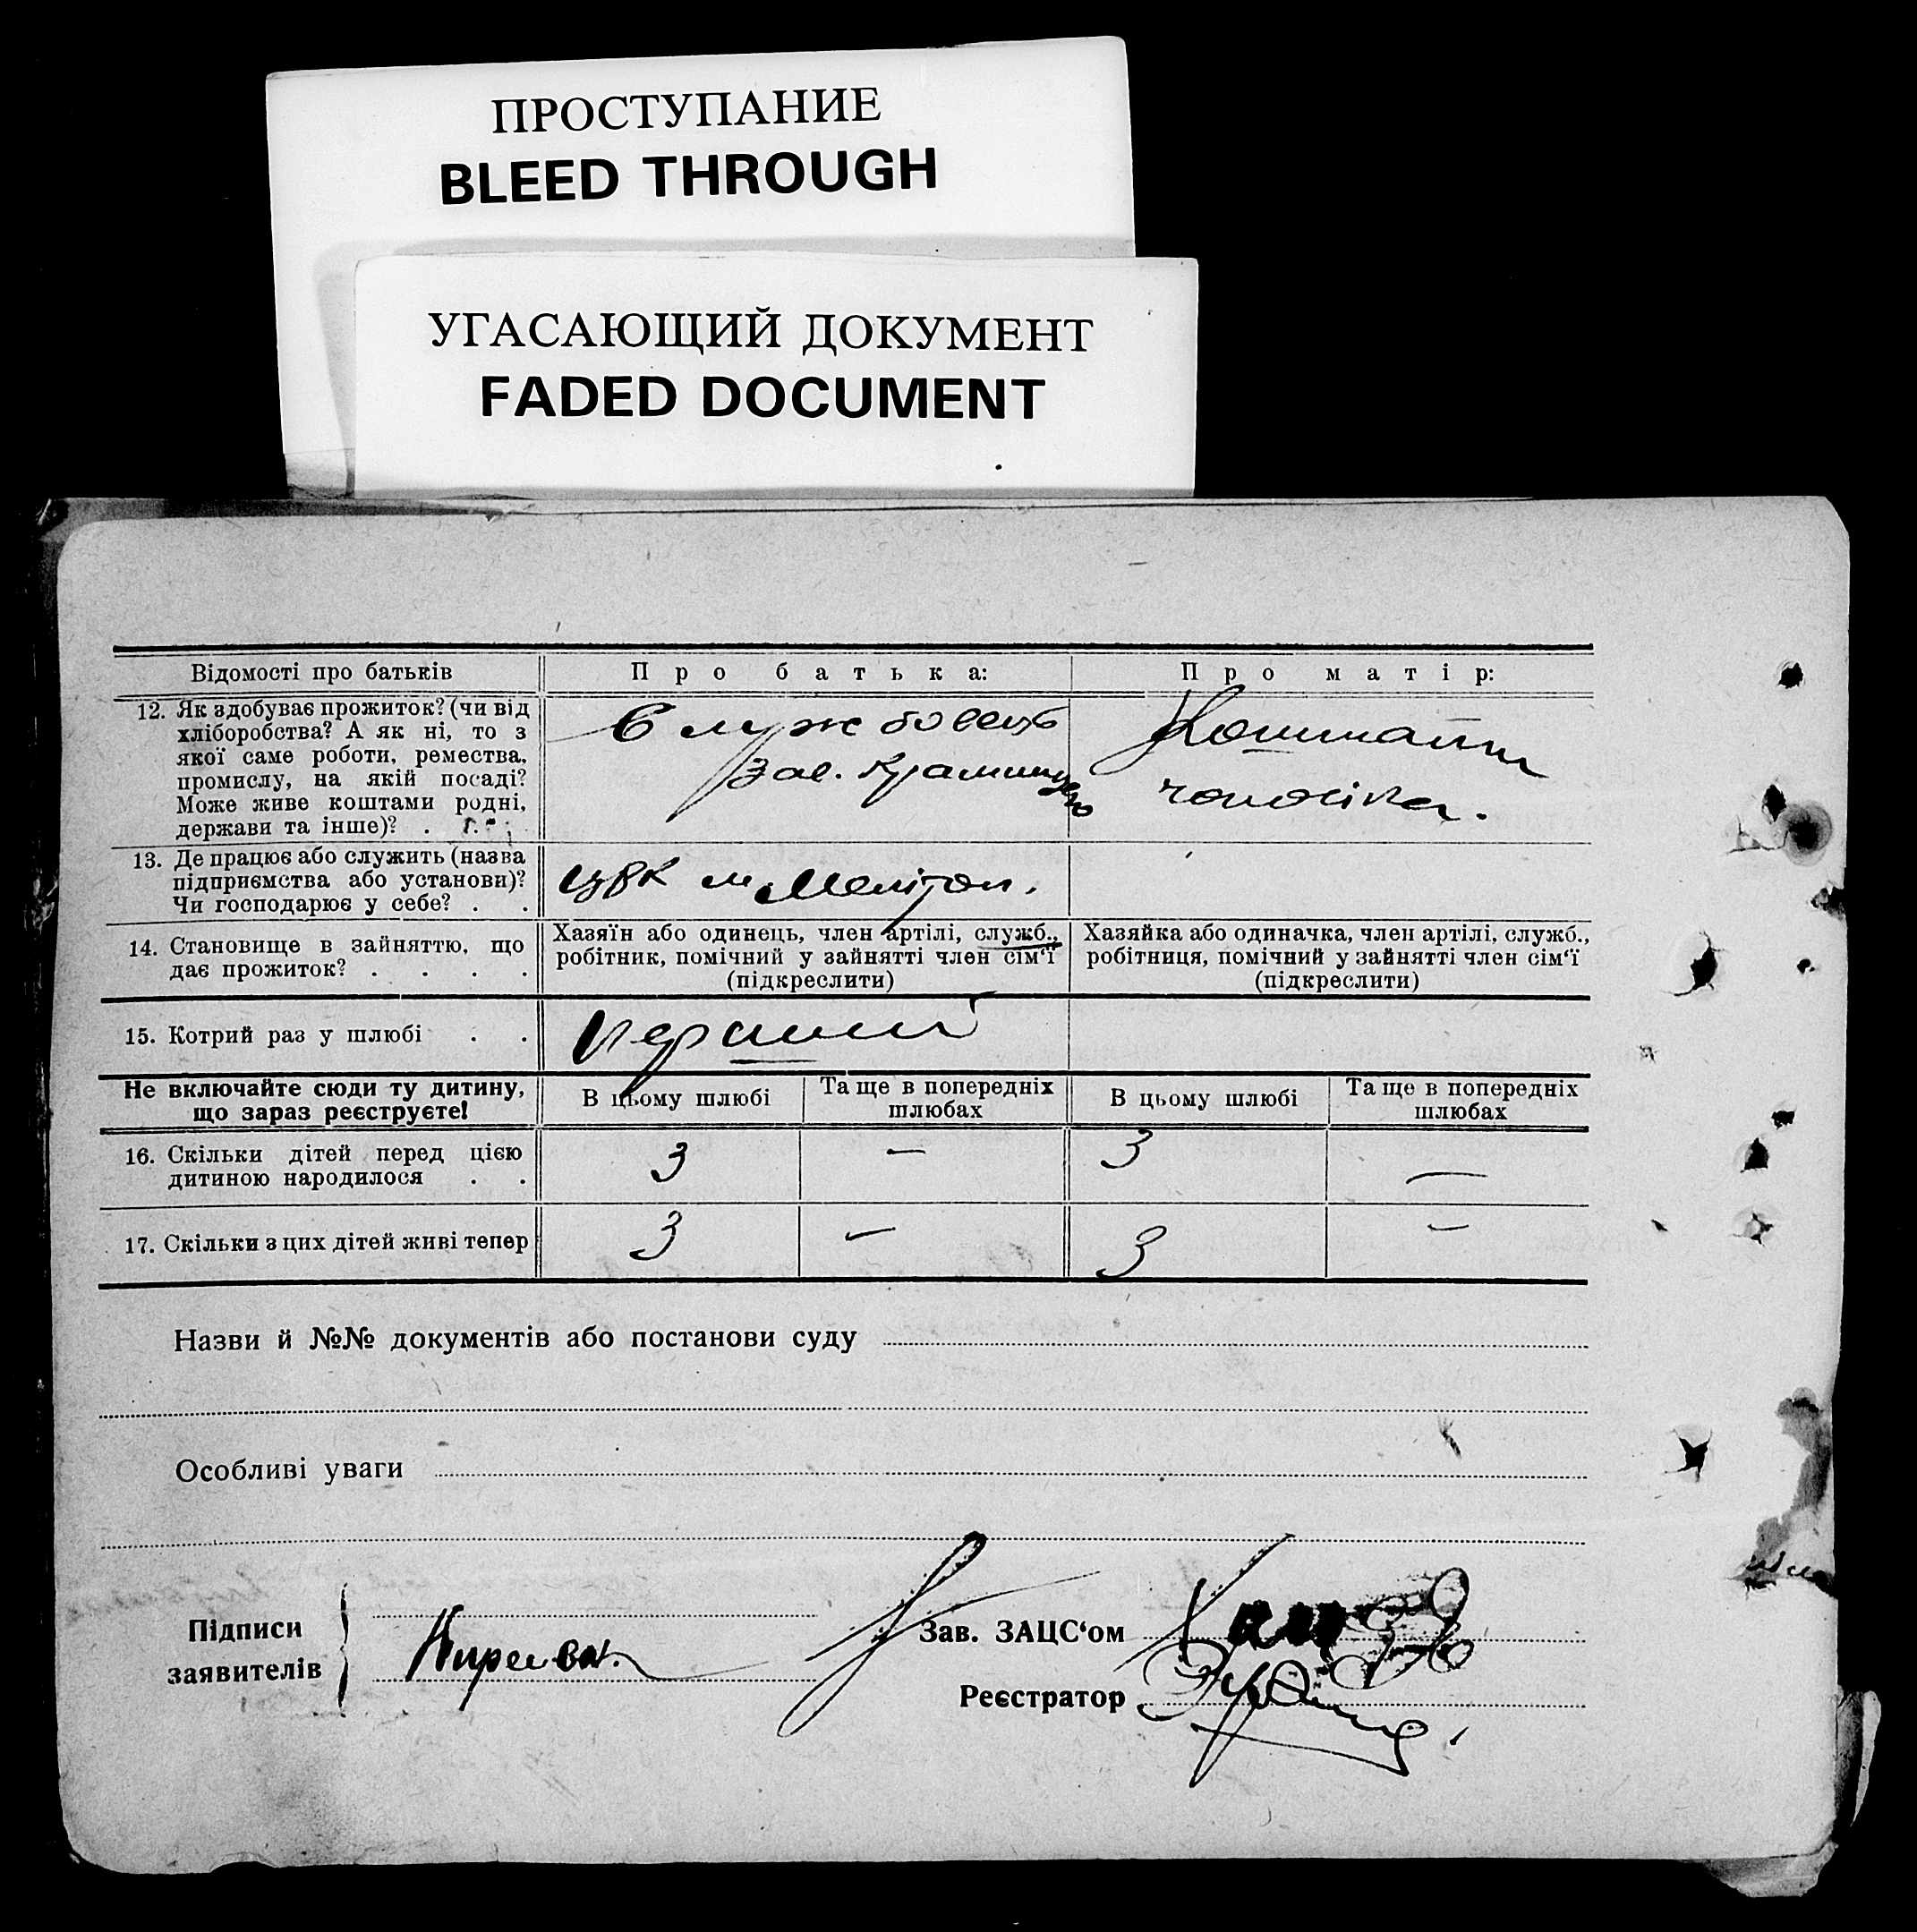 ПРОСТУПАНИЕ
BLEED THROUGH
УГАСАЮЩИЙ ДОКУМЕНТ
FADED DOCUMENT
Відомості про батьків
Про батька:
Про матір:
12. Як здобуває прожиток? (чи від
хліборобства? А як ні, то з
якої саме роботи, ремества,
промислу, на якій посаді?
Може живе коштами родні,
держави та інше)? .
Службовець
Зав. Крамницею
Коштами
чоловіка.
13. Де працює або служить (назва
підприємства або установи)?
Чи господарює у себе? . .
ЦРК м. Мелітоп.
14. Становище в зайняттю, що
дає прожиток? . . . .
Хазяїн або одинець, член артілі, служб.,
робітник, помічний у зайнятті член сім'ї
(підкреслити)
Хазяйка або одиначка, член артілі, служб.,
робітниця, помічний у зайнятті член сім'ї
(підкреслити)
15. Котрий раз у шлюбі . .
Перший
Не включайте сюди ту дитину,
що зараз реєструєте!
В цьому шлюбі
Та ще в попередніх
шлюбах
В цьому шлюбі
Та ще в попередніх
шлюбах
16. Скільки дітей перед цією
дитиною народилося . .
3
—
3
—
17. Скільки з цих дітей живі тепер
3
—
3
—
Назви й №№ документів або постанови суду
Особливі уваги
Підписи
заявителів
Зав. ЗАЦС'ом
Реєстратор